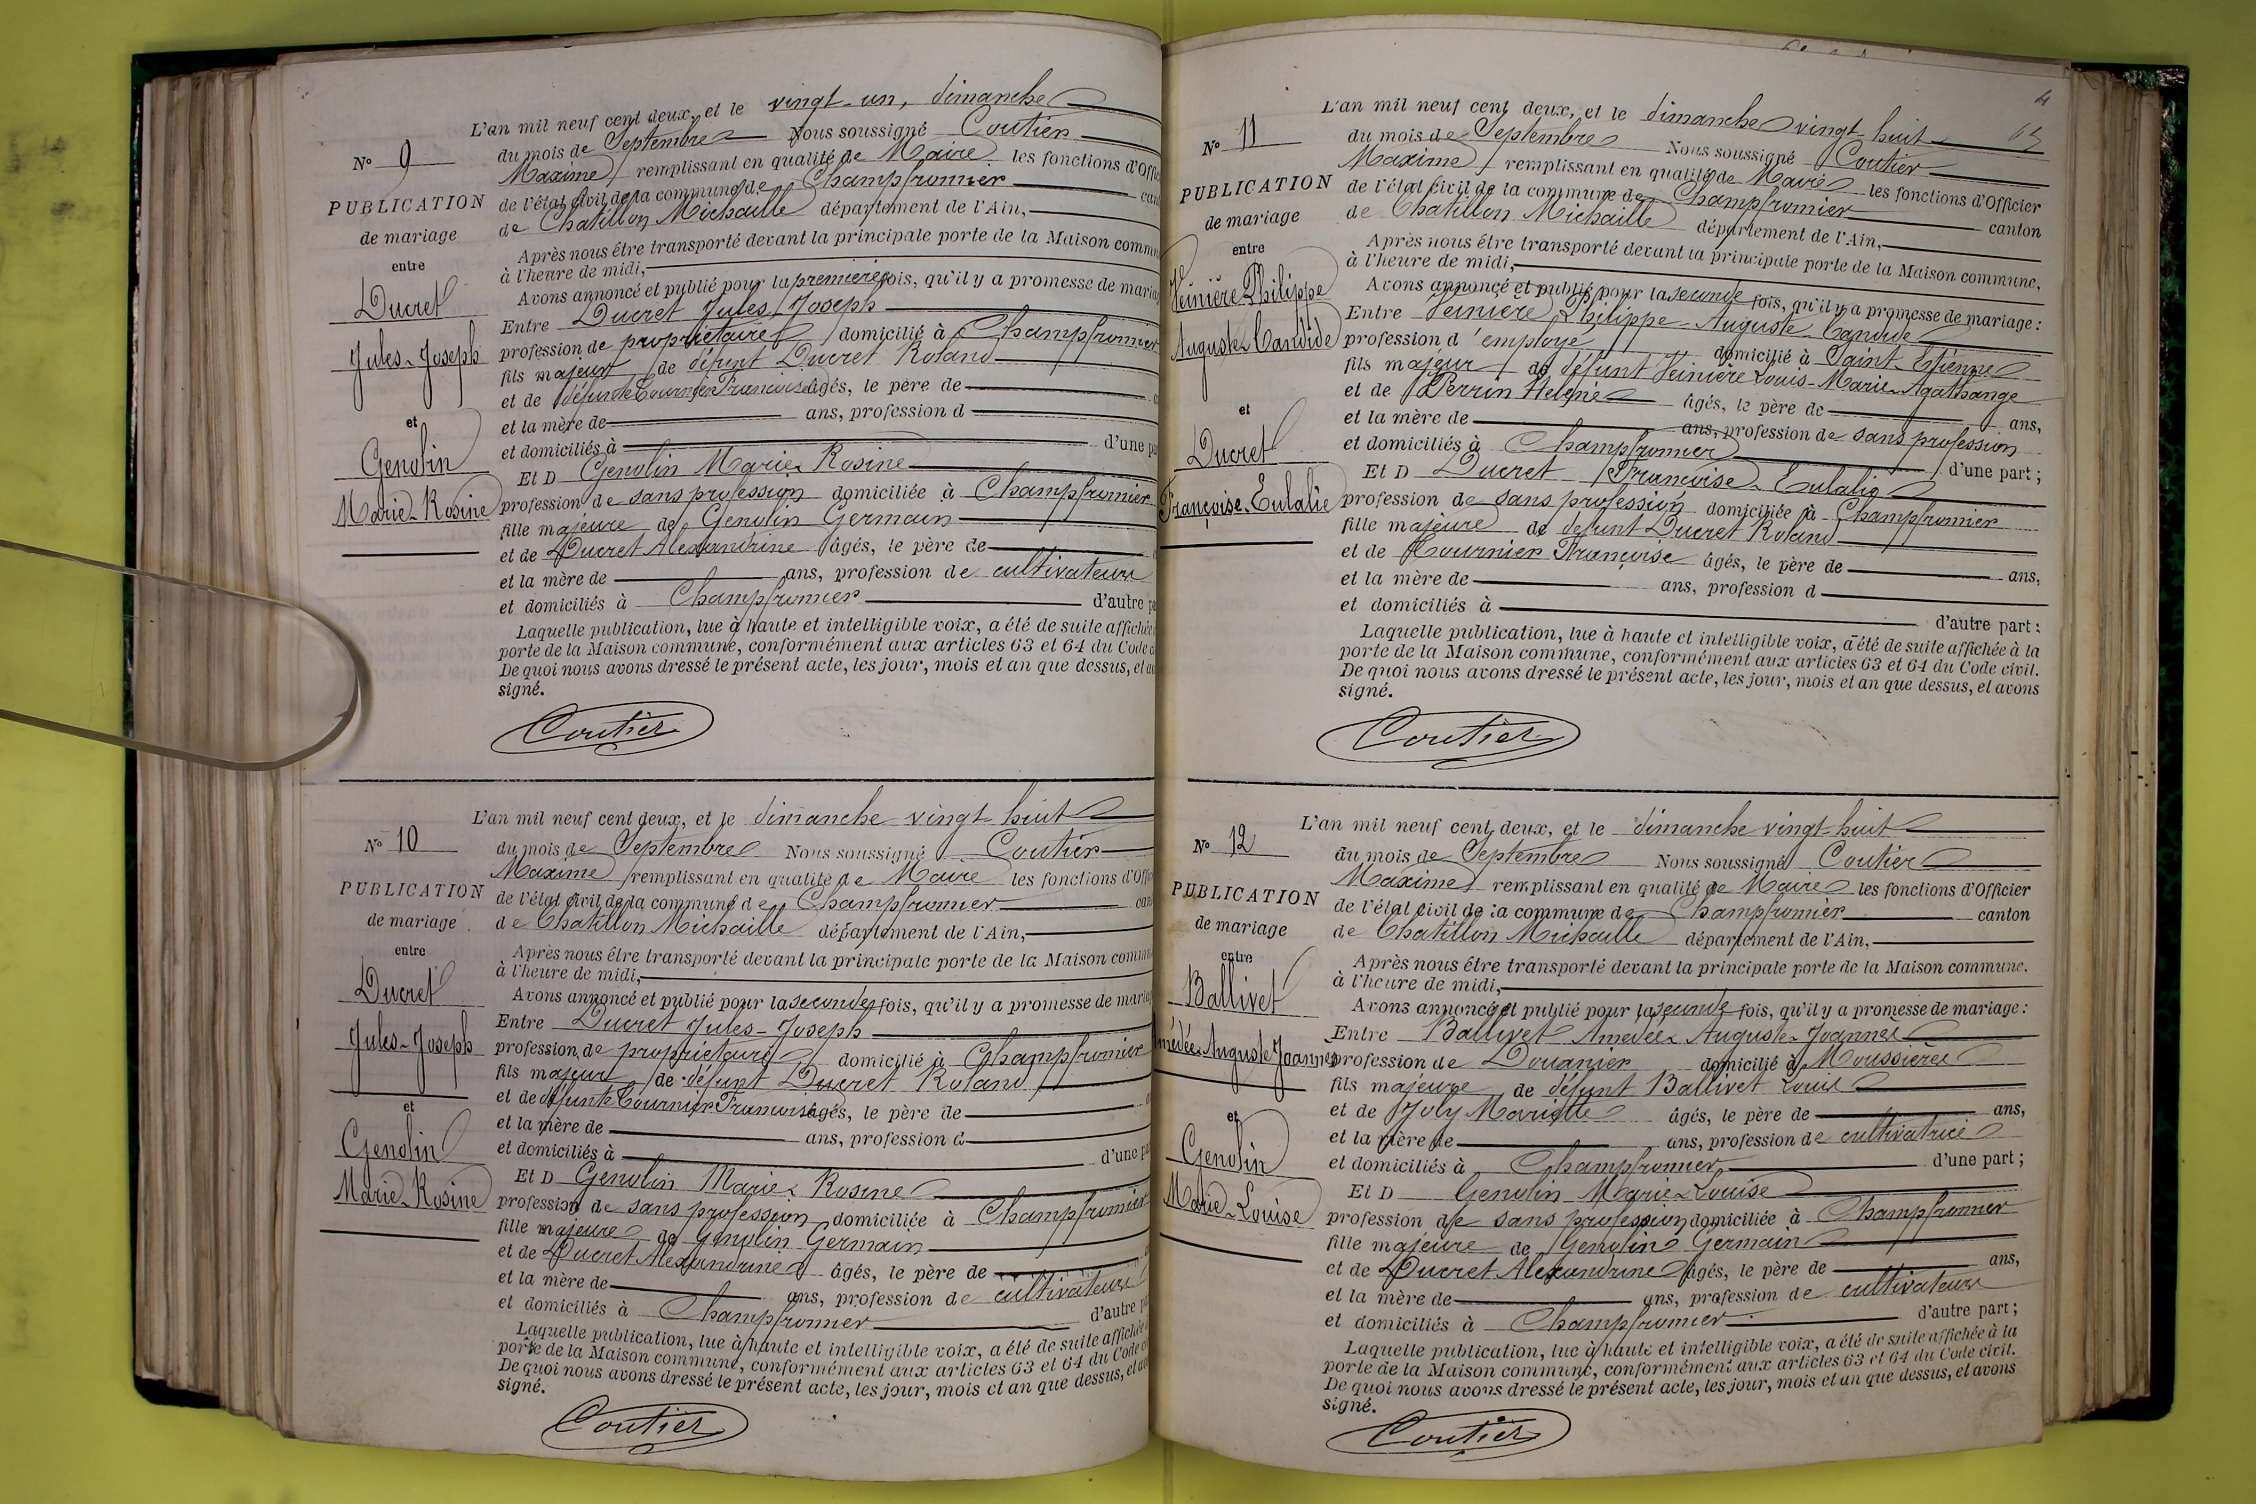 L'an mil neuf cent deux, et le vingt-un, dimanche
du mois de Septembre Nous soussigné Coutier
Maxime remplissant en qualité de Maire les fonctions d'Offi
de l'état civil de la commune de Champfromier can
de Chatillon Michaille département de l'Ain,
Après nous être transporté devant la principale porte de la Maison commun
à l'heure de midi,
Avons annoncé et publié pour la première fois, qu'il y a promesse de maria
Entre Ducret Jules Joseph
profession de propriétaire domicilié à Champfromier
fils majeur de défunt Ducret Roland
et de défunte Tournier Françoise âgés, le père de
et la mère de ans, profession d
et domiciliés à d'une pa
Et D Genolin Marie-Rosine
profession de sans profession domiciliée à Champfromier
fille majeure de Genolin Germain
et de Ducret Alexandrine âgés, le père de
et la mère de ans, profession de cultivateurs
et domiciliés à Champfromier d'autre pa
Laquelle publication, lue à haute et intelligible voix, a été de suite affichée
porte de la Maison commune, conformément aux articles 63 et 64 du Code c
De quoi nous avons dressé le présent acte, les jour, mois et an que dessus, et av
signé.
Coutier
No 9
PUBLICATION
de mariage
entre
Ducret
Jules-Joseph
et
Genolin
Marie-Rosine
L'an mil neuf cent deux, et le dimanche vingt-huit
du mois de Septembre Nous soussigné Coutier
Maxime remplissant en qualité de Maire les fonctions d'Offi
de l'état civil de la commune de Champfromier can
de Chatillon Michaille département de l'Ain,
Après nous être transporté devant la principale porte de la Maison commun
à l'heure de midi,
Avons annoncé et publié pour la seconde fois, qu'il y a promesse de maria
Entre Ducret Jules-Joseph
profession de propriétaire domicilié à Champfromier
fils majeur de défunt Ducret Roland
et de défunte Tournier Françoise âgés, le père de
et la mère de ans, profession d
et domiciliés à d'une pa
Et D Genolin Marie-Rosine
profession de sans profession domiciliée à Champfromier
fille majeure de Genolin Germain
et de Ducret Alexandrine âgés, le père de
et la mère de ans, profession de cultivateurs
et domiciliés à Champfromier d'autre pa
Laquelle publication, lue à haute et intelligible voix, a été de suite affichée
porte de la Maison commune, conformément aux articles 63 et 64 du Code c
De quoi nous avons dressé le présent acte, les jour, mois et an que dessus, et av
signé.
Coutier
No 10
PUBLICATION
de mariage
entre
Ducret
Jules-Joseph
et
Genolin
Marie-Rosine
4
L'an mil neuf cent deux, et le dimanche vingt-huit
du mois de Septembre Nous soussigné Coutier
Maxime remplissant en qualité de Maire les fonctions d'Officier
de l'état civil de la commune de Champfromier canton
de Chatillon Michaille département de l'Ain,
Après nous être transporté devant la principale porte de la Maison commune,
à l'heure de midi,
Avons annoncé et publié pour la seconde fois, qu'il y a promesse de mariage :
Entre Veinière Philippe-Auguste-Candide
profession d'employé domicilié à Saint-Etienne
fils majeur de défunt Veinière Louis-Marie-Agathange
et de Perrin Helène âgés, le père de ans,
et la mère de ans, profession de sans profession
et domiciliés à Champfromier d'une part ;
Et D Ducret Françoise-Eulalie
profession de sans profession domiciliée à Champfromier
fille majeure de défunt Ducret Roland
et de Tournier Françoise âgés, le père de ans,
et la mère de ans, profession d
et domiciliés à d'autre part :
Laquelle publication, lue à haute et intelligible voix, a été de suite affichée à la
porte de la Maison commune, conformément aux articles 63 et 64 du Code civil.
De quoi nous avons dressé le présent acte, les jour, mois et an que dessus, et avons
signé.
Coutier
No 11
PUBLICATION
de mariage
entre
Veinière Philippe
Auguste-Candide
et
Ducret
Françoise-Eulalie
L'an mil neuf cent deux, et le dimanche vingt-huit
du mois de Septembre Nous soussigné Coutier
Maxime remplissant en qualité de Maire les fonctions d'Officier
de l'état civil de la commune de Champfromier canton
de Chatillon Michaille département de l'Ain,
Après nous être transporté devant la principale porte de la Maison commune.
à l'heure de midi,
Avons annoncé et publié pour la seconde fois, qu'il y a promesse de mariage :
Entre Ballivet Amédée-Auguste-Joannès
profession de Douanier domicilié à Moussières
fils majeure de défunt Ballivet Louis
et de Joly Mariette âgés, le père de ans,
et la mère de ans, profession de cultivatrice
et domiciliés à Champfromier d'une part ;
Et D Genolin Marie-Louise
profession de sans profession domiciliée à Champfromier
fille majeure de Genolin Germain
et de Ducret Alexandrine âgés, le père de ans,
et la mère de ans, profession de cultivateurs
et domiciliés à Champfromier d'autre part ;
Laquelle publication, lue à haute et intelligible voix, a été de suite affichée à la
porte de la Maison commune, conformément aux articles 63 et 64 du Code civil.
De quoi nous avons dressé le présent acte, les jour, mois et an que dessus, et avons
signé.
Coutier
No 12
PUBLICATION
de mariage
entre
Ballivet
médée-Auguste Joannès
et
Genolin
Marie-Louise